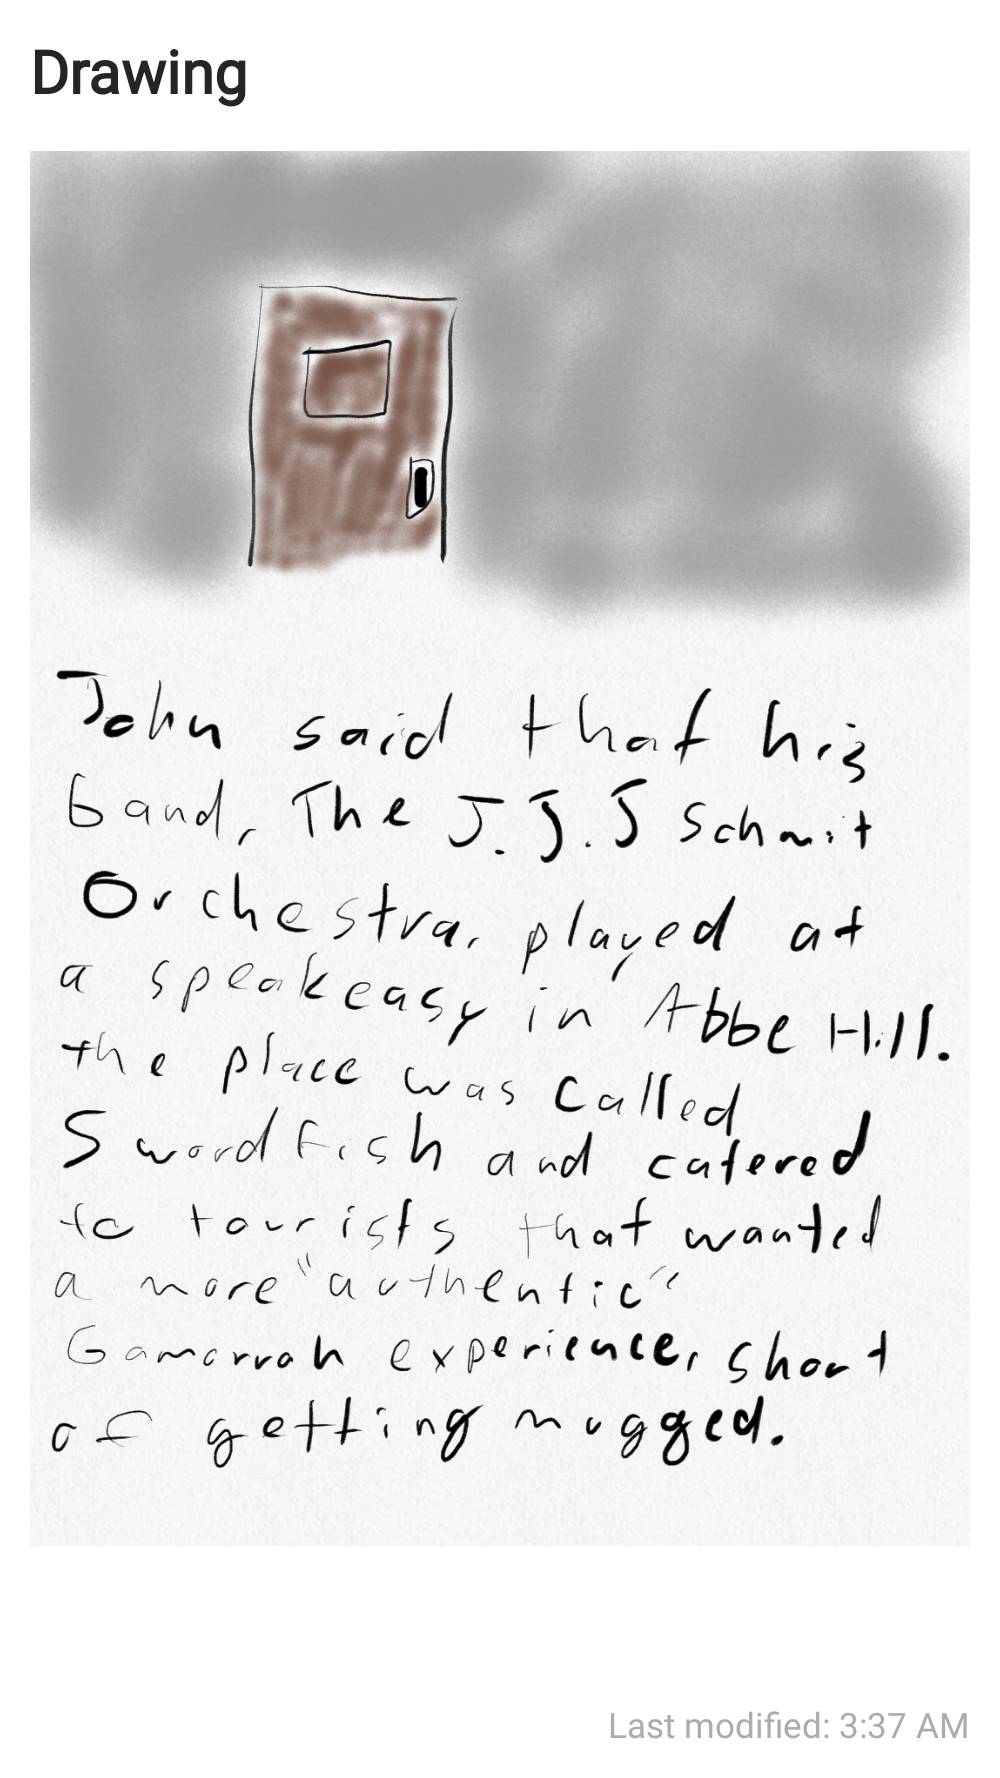 Drawing
John said that his
band, The J.J.J Schmit
Orchestra, played at
a speakeasy in Abbe Hill.
the place was called
Swordfish and catered
to tourists that wanted
a more "authentic"
Gamorrah experience, short
of getting mugged.
Last modified: 3:37 AM